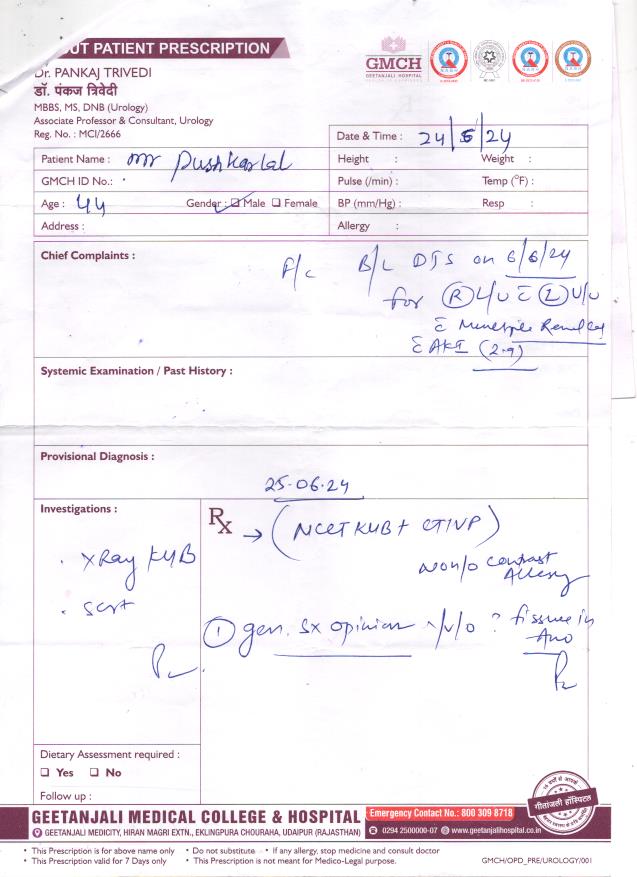 OUT PATIENT PRESCRIPTION
GMCH
GEETANJALI HOSPITAL
Dr. PANKAJ TRIVEDI
डॉ. पंकज त्रिवेदी
MBBS, MS, DNB (Urology)
Associate Professor & Consultant, Urology
Reg. No. : MCI/2666
Date & Time : 24/5/24
Patient Name : Mr Pushkarlal
Height : Weight :
GMCH ID No.:
Pulse (/min) : Temp (°F) :
Age : 44 Gender : ☐ Male ☐ Female
BP (mm/Hg) : Resp :
Address :
Allergy :
Chief Complaints :
F/c B/L DJS on 6/6/24
for Ⓡ L/U c̄ Ⓛ U/U
c̄ Multiple Renal
c̄ AKI (2.9)
Systemic Examination / Past History :
Provisional Diagnosis :
25.06.24
Investigations :
Rx → (NCCT KUB + CTIVP)
• XRay KUB
No h/o Contrast
Allergy
• SCrt
① gen. Sx opinion i/v/o ? fissure in
Ano
Dietary Assessment required :
☐ Yes ☐ No
Follow up :
गीतांजली हॉस्पिटल
GEETANJALI MEDICAL COLLEGE & HOSPITAL
Emergency Contact No.: 800 309 8718
GEETANJALI MEDICITY, HIRAN MAGRI EXTN., EKLINGPURA CHOURAHA, UDAIPUR (RAJASTHAN)
0294 2500000-07 www.geetanjalihospital.co.in
• This Prescription is for above name only • Do not substitute • If any allergy, stop medicine and consult doctor
• This Prescription valid for 7 Days only • This Prescription is not meant for Medico-Legal purpose.
GMCH/OPD_PRE/UROLOGY/001